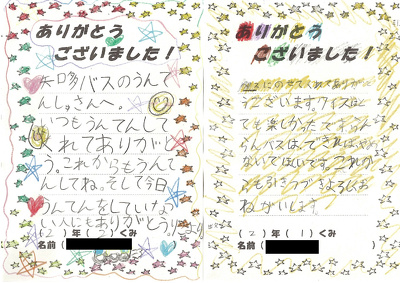 ありがとう
ございました！
矢口多バスのうんて
んしゅさんへ。
いつもうんてんして
くれてありがと
う。これからもうんて
んしてね。そして今日
うんてんをしていな
い人にもありがとう。
(2)年(2)くみ
名前(
ありがとう
ございました！
バスにのせてくれてありがと
うございます。クイズはと
ても楽しかったです。
バスは、できればやめ
ないでほしいです。これか
らも引きつづきよろしくお
ねがいします。
(2)年(1)くみ
名前(